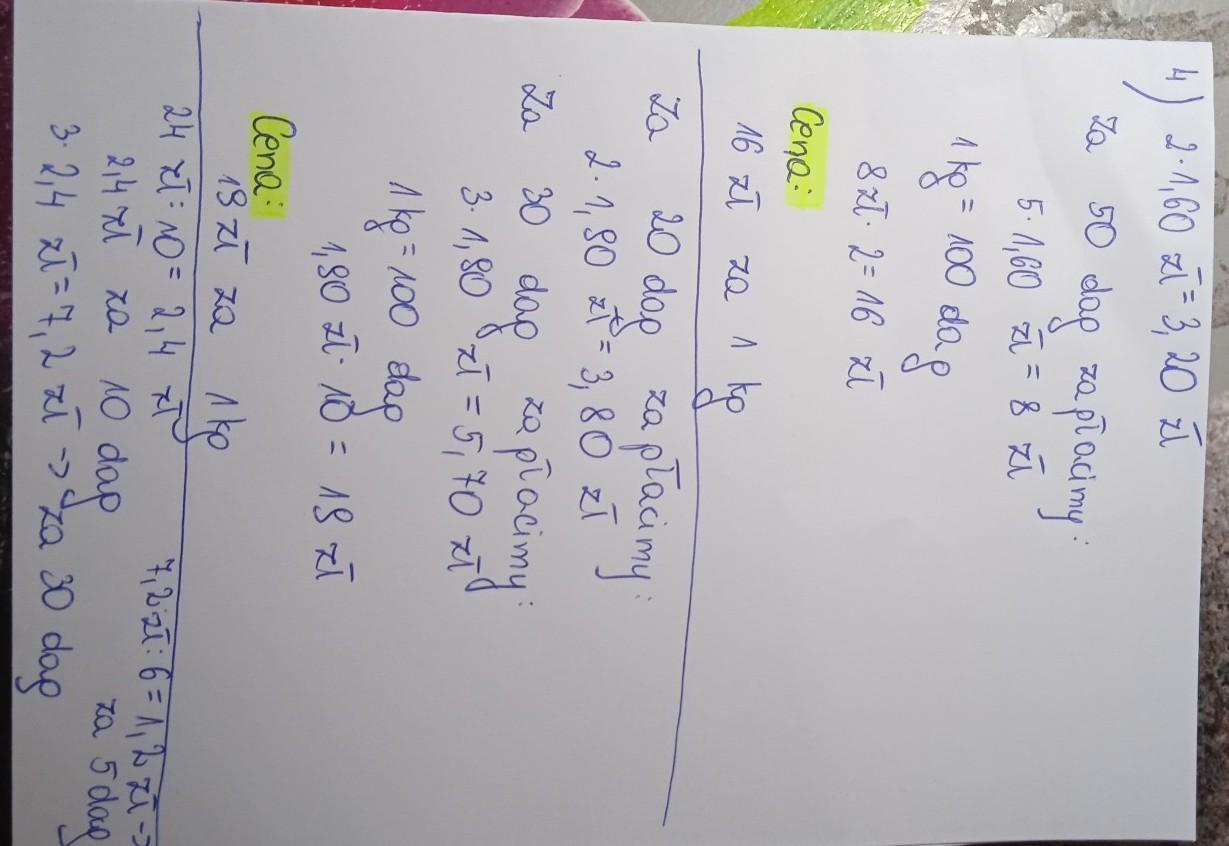 4) 2·1,60 zł = 3,20 zł
Za 50 dag zapłacimy:
5·1,60 zł = 8 zł
1 kg = 100 dag
8 zł· 2 = 16 zł
Cena:
16 zł za 1 kg
Za 20 dag zapłacimy:
2·1,90 zł = 3,80 zł
Za 30 dag zapłacimy:
3·1,90 zł = 5,70 zł
1 kg = 100 dag
1,90 zł· 10 = 19 zł
Cena:
19 zł za 1 kg
24 zł : 10 = 2,4 zł
7,2 zł : 6 = 1,2 zł ->
2,4 zł za 10 dag
za 5 dag
3·2,4 zł = 7,2 zł -> za 30 dag